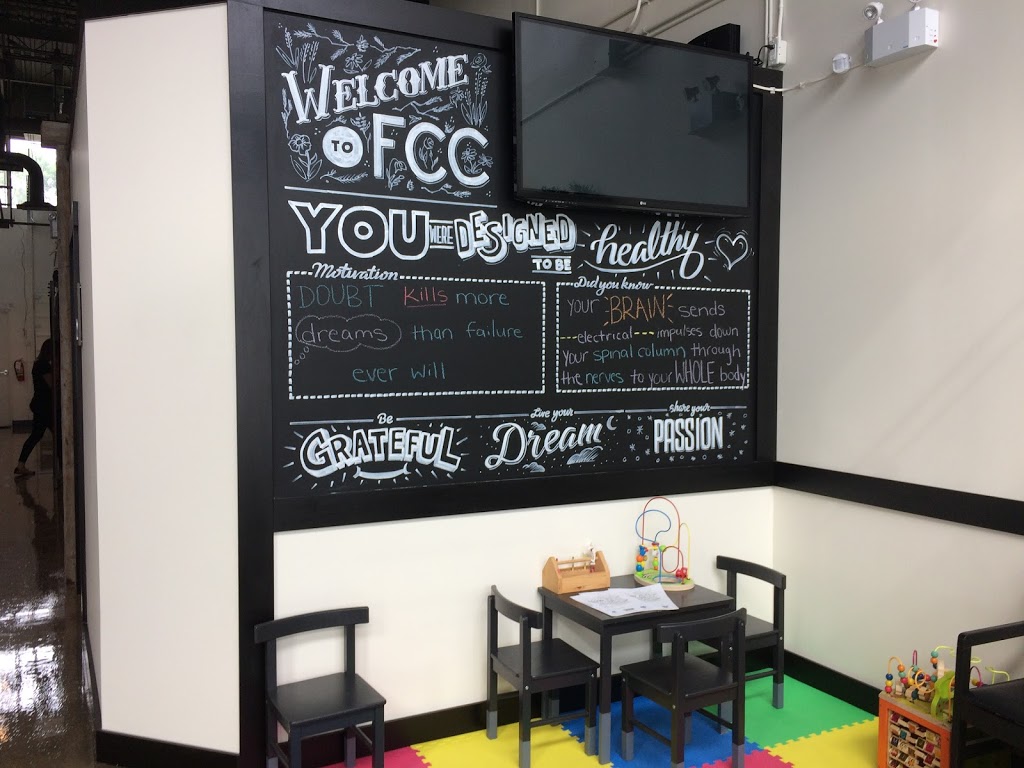 WELCOME
TO FCC
YOU WERE DESIGNED
TO BE
healthy
Motivation
DOUBT Kills more
dreams than failure
ever will
Did you know
Your BRAIN sends
electrical impulses down
your spinal column through
the nerves to your WHOLE body
Be
GRATEFUL
Live your
Dream
share your
PASSION